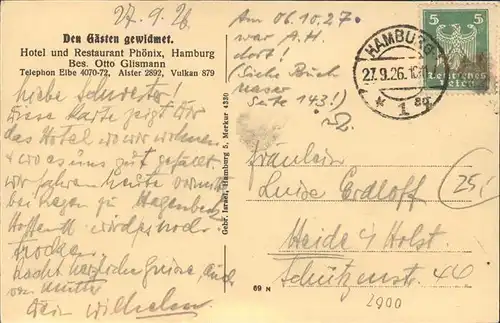 27. 9. 26
Den Gästen gewidmet.
Hotel und Restaurant Phönix, Hamburg
Bes. Otto Glismann
Telephon Elbe 4070-72, Alster 2892, Vulkan 879
Liebe Schwester!
Diese Karte zeigt Dir
das Hotel wo wir wohnen
+ wo es uns gut gefällt.
wir fahren heute vormitt.
bei Regen zu Hagenbeck
Hoffentl. wird's noch
trocken.
herzliche Grüsse, auch
von Mutter
Dein Wilhelm.
Gebr. Israel, Hamburg 5, Merkur 4330
69 N
Am 06.10.27.
war A.H.
dort!
(Siehe Buch
Seite 143!)
HAMBURG
27.9.26.10
* 1
5 5
Deutsches
Reich
Fräulein
Luise Erdloff
Heide i/ Holst.
Schützenstr. 44
25.-
2900